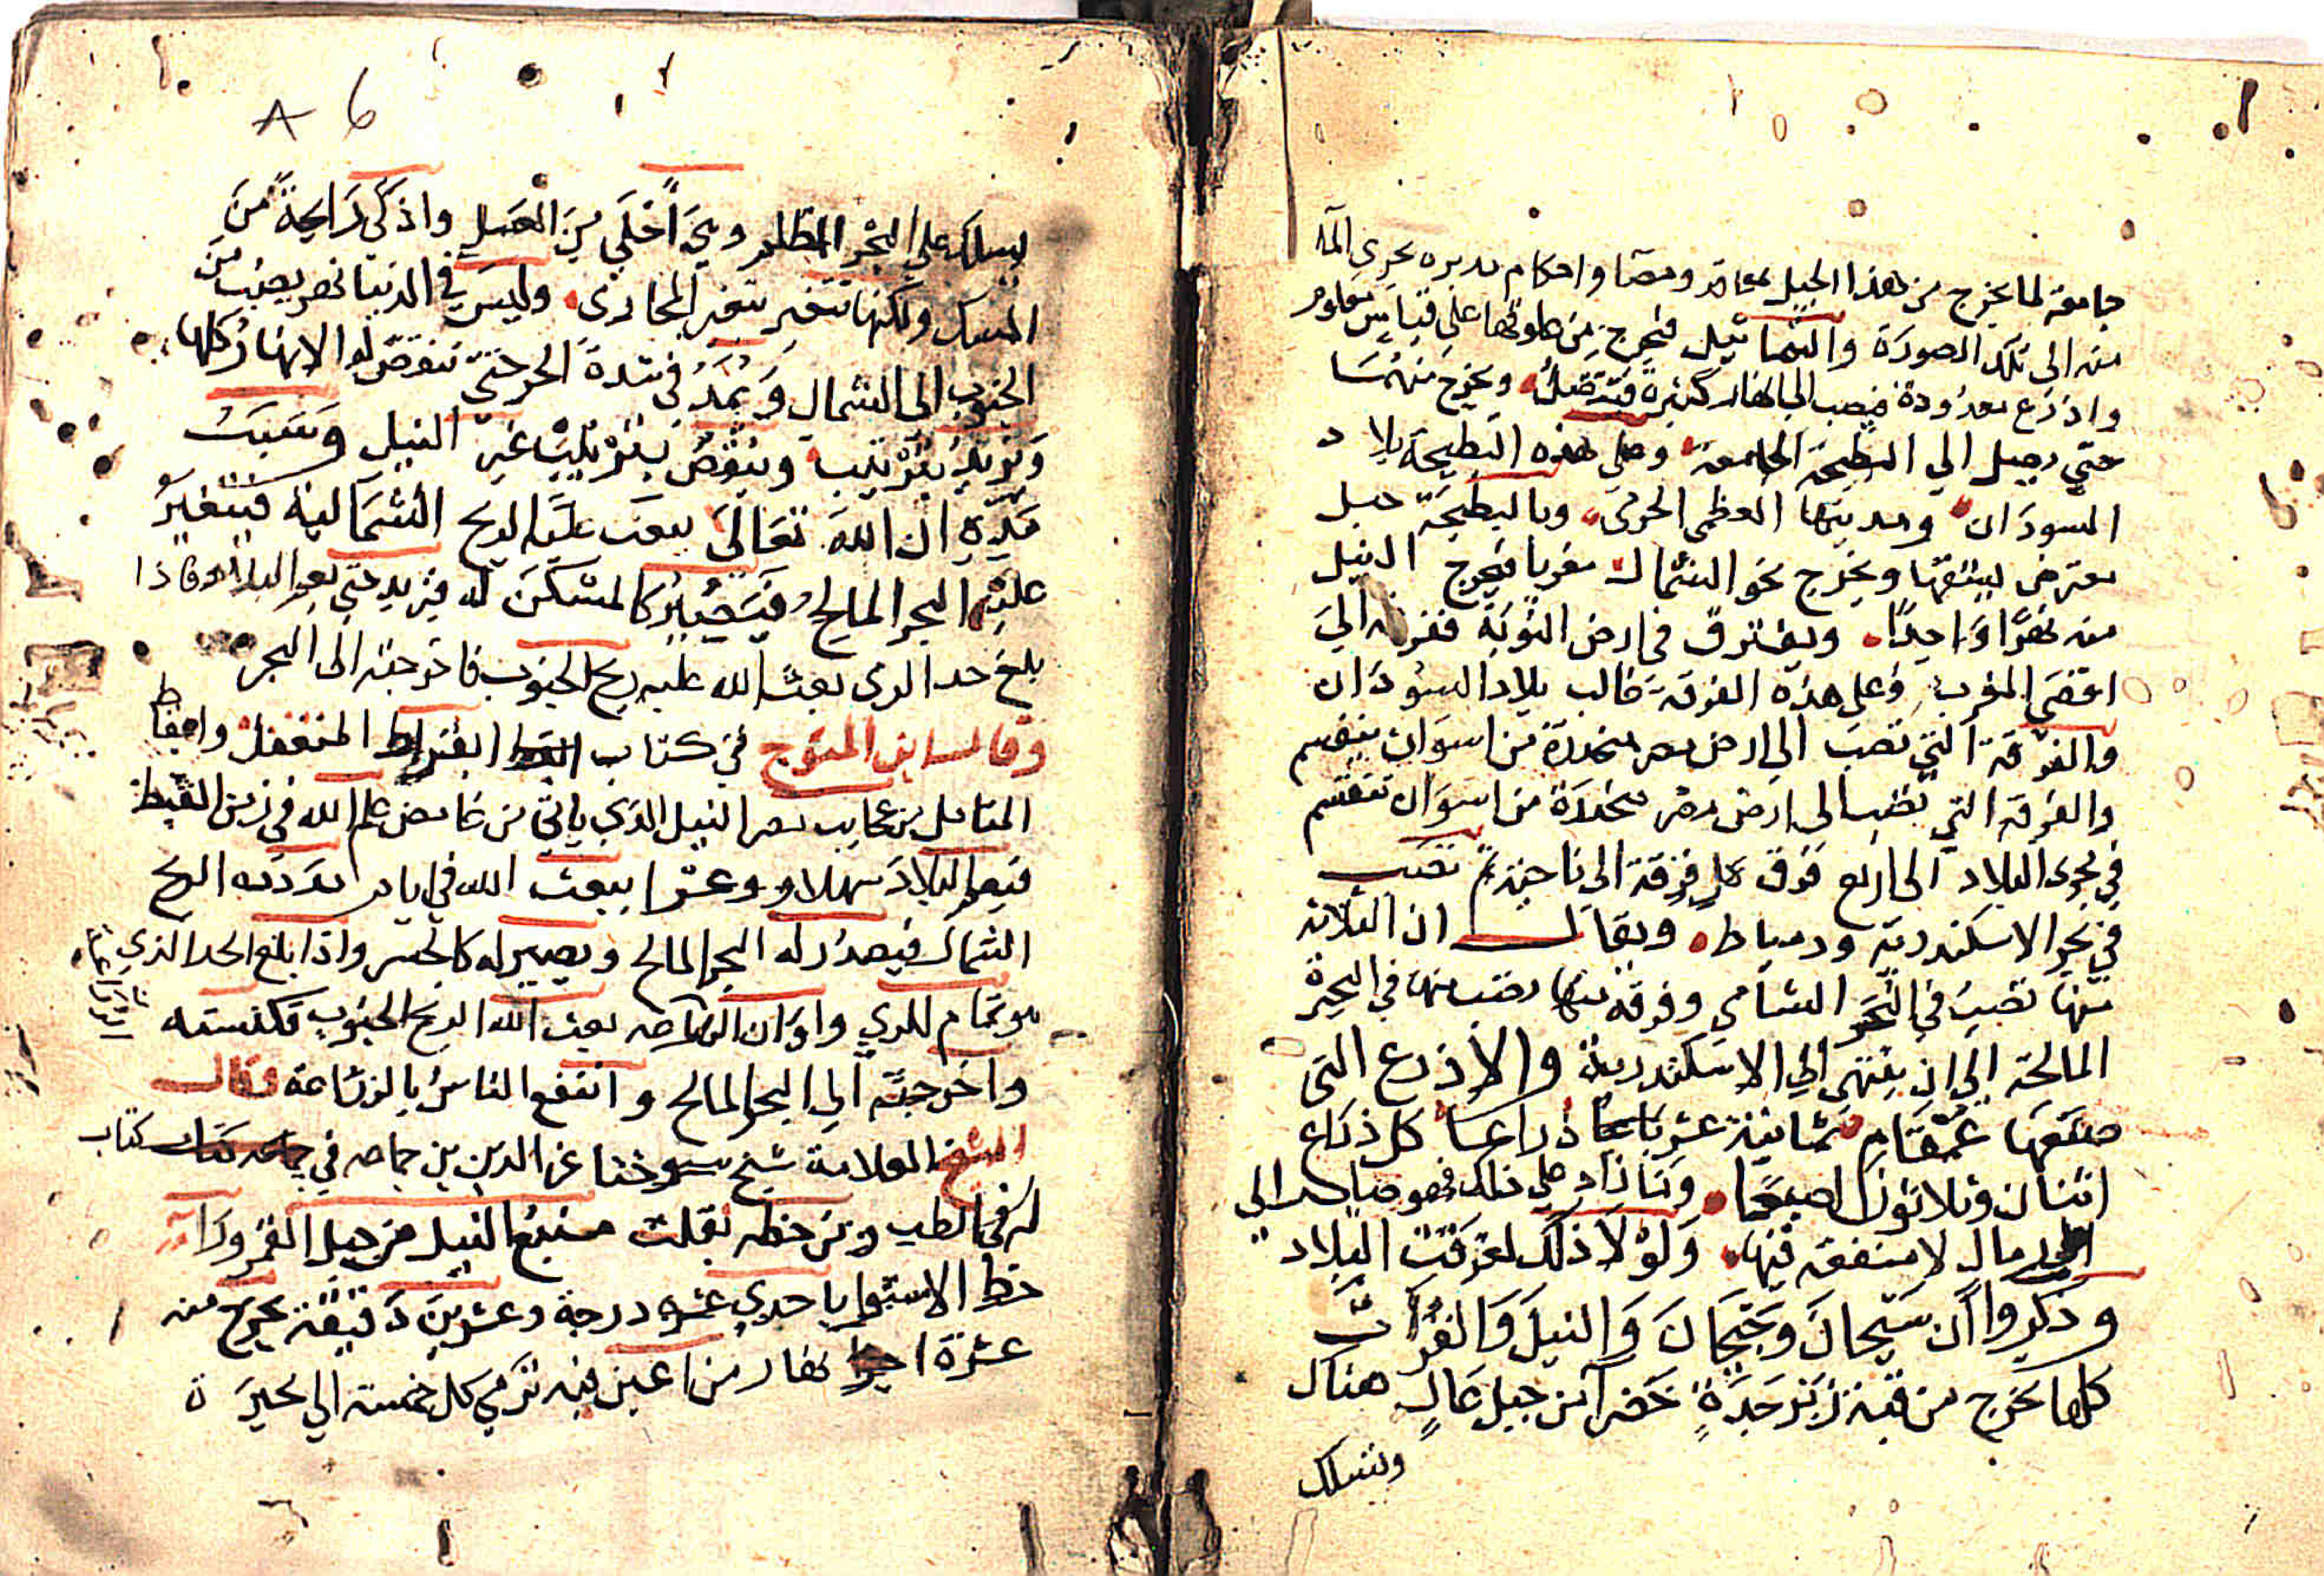 جامعة لما يخرج من هذا الجبل بمعاقد ومصبا واحكام مدبره يجري المآ
منه الى تلك الصورة والتماثيل فيخرج من حلوقها على قياس معلوم
واذرع معدودة فيصب الى انهار كثيرة فتتصل ويخرج منهما
حتى يصل الي البطيحة الجامعة وعلى هذه البطيحة بلاد
السودان ومدينتها العظمى الحرمى وبالبطيحة جبل
معترض ليشقها ويخرج نحو الشمال مغربا فيخرج النيل
منه نهرًا وَاحدًا ويفترق في ارض النوبَة ففرقه الي
اقصى المغرب وعلى هذه الفرقة غالب بلاد السودان
والفرقة التي تصب الى ارض مصر منحدرة من اسوان ينقسم
والفرقة التي تصب الى ارض مصر منحدرة من اسوان تنقسم
في مجرى البلاد الى اربع فرق كل فرقة الي ناحية ثم تصب
في بحر الاسكندرية ودمياط ويقال ان الثلاثه
منها تصب في البحر الشامي وفرقة منها تصب منها في البحيرة
المالحة الي ان ينتهي الي الاسكندرية والاذرع التى
صنعها عمقام ثمانية عشر ذراعا كل ذراع
اثنان وثلاثون اصبعا وما زاد على ذلك فهو صاير الي
رمال لا منفعة فيها ولولا ذلك لغرقت البلاد
وذكروا ان سَيحان وجَيحان والنيل والفرات
كلها تخرج من قبة زبرجدة خضرآ من جبل عال هناك
وتسلك
٨ 6
تسلك على البحر المظلم وهي احلى من العسل واذكي رايحة من
المسك ولكنها تتغير بتغير المجارى وليس في الدنيا نهر يصب من
الجنوب الى الشمال وَيمُد في شدة الحر حتى تنقص له الانهار كلها
وَيزيد بترتيب وينقص بترتيب غير النيل وسَبَب
مَدِّه ان الله تعالى يبعث عليه الريح الشمالية فيتغير
عليه البحر المالح فيَصير كالمسكن له فيزيد حتى يعم البلاد فاذا
بلغ حد الرى بعث الله عليه ريح الجنوب فاخرجته الى البحر
وقال ابن المتوج في كتاب ايقاظ المتغفل واتعاظ
المتامل من عجايب مصر النيل الذي ياتي من غامض علم الله في زمن القيظ
فيعم البلاد سهلا و وعرا يبعث الله في ايام مدده الريح
الشمال فيصدر له البحر المالح ويصير له كالجسر واذا بلغ الحد الذي
هو تمام للري واوان الزراعه بعث الله الريح الجنوب فكنسته
واخرجته الي البحر المالح وانتفع الناس بالزراعة وقال
الشيخ العلامة شيخ شيوخنا عز الدين بن جماعه في كتاب
له في الطب ومن خطه نقلت منبع النيل من جبل القمر ورآ
خط الاستوا باحدي عشره درجة وعشرين دقيقة يخرج منه
عشرة انهار من اعين فيه ترمي كل خمسة الي بحيرَة